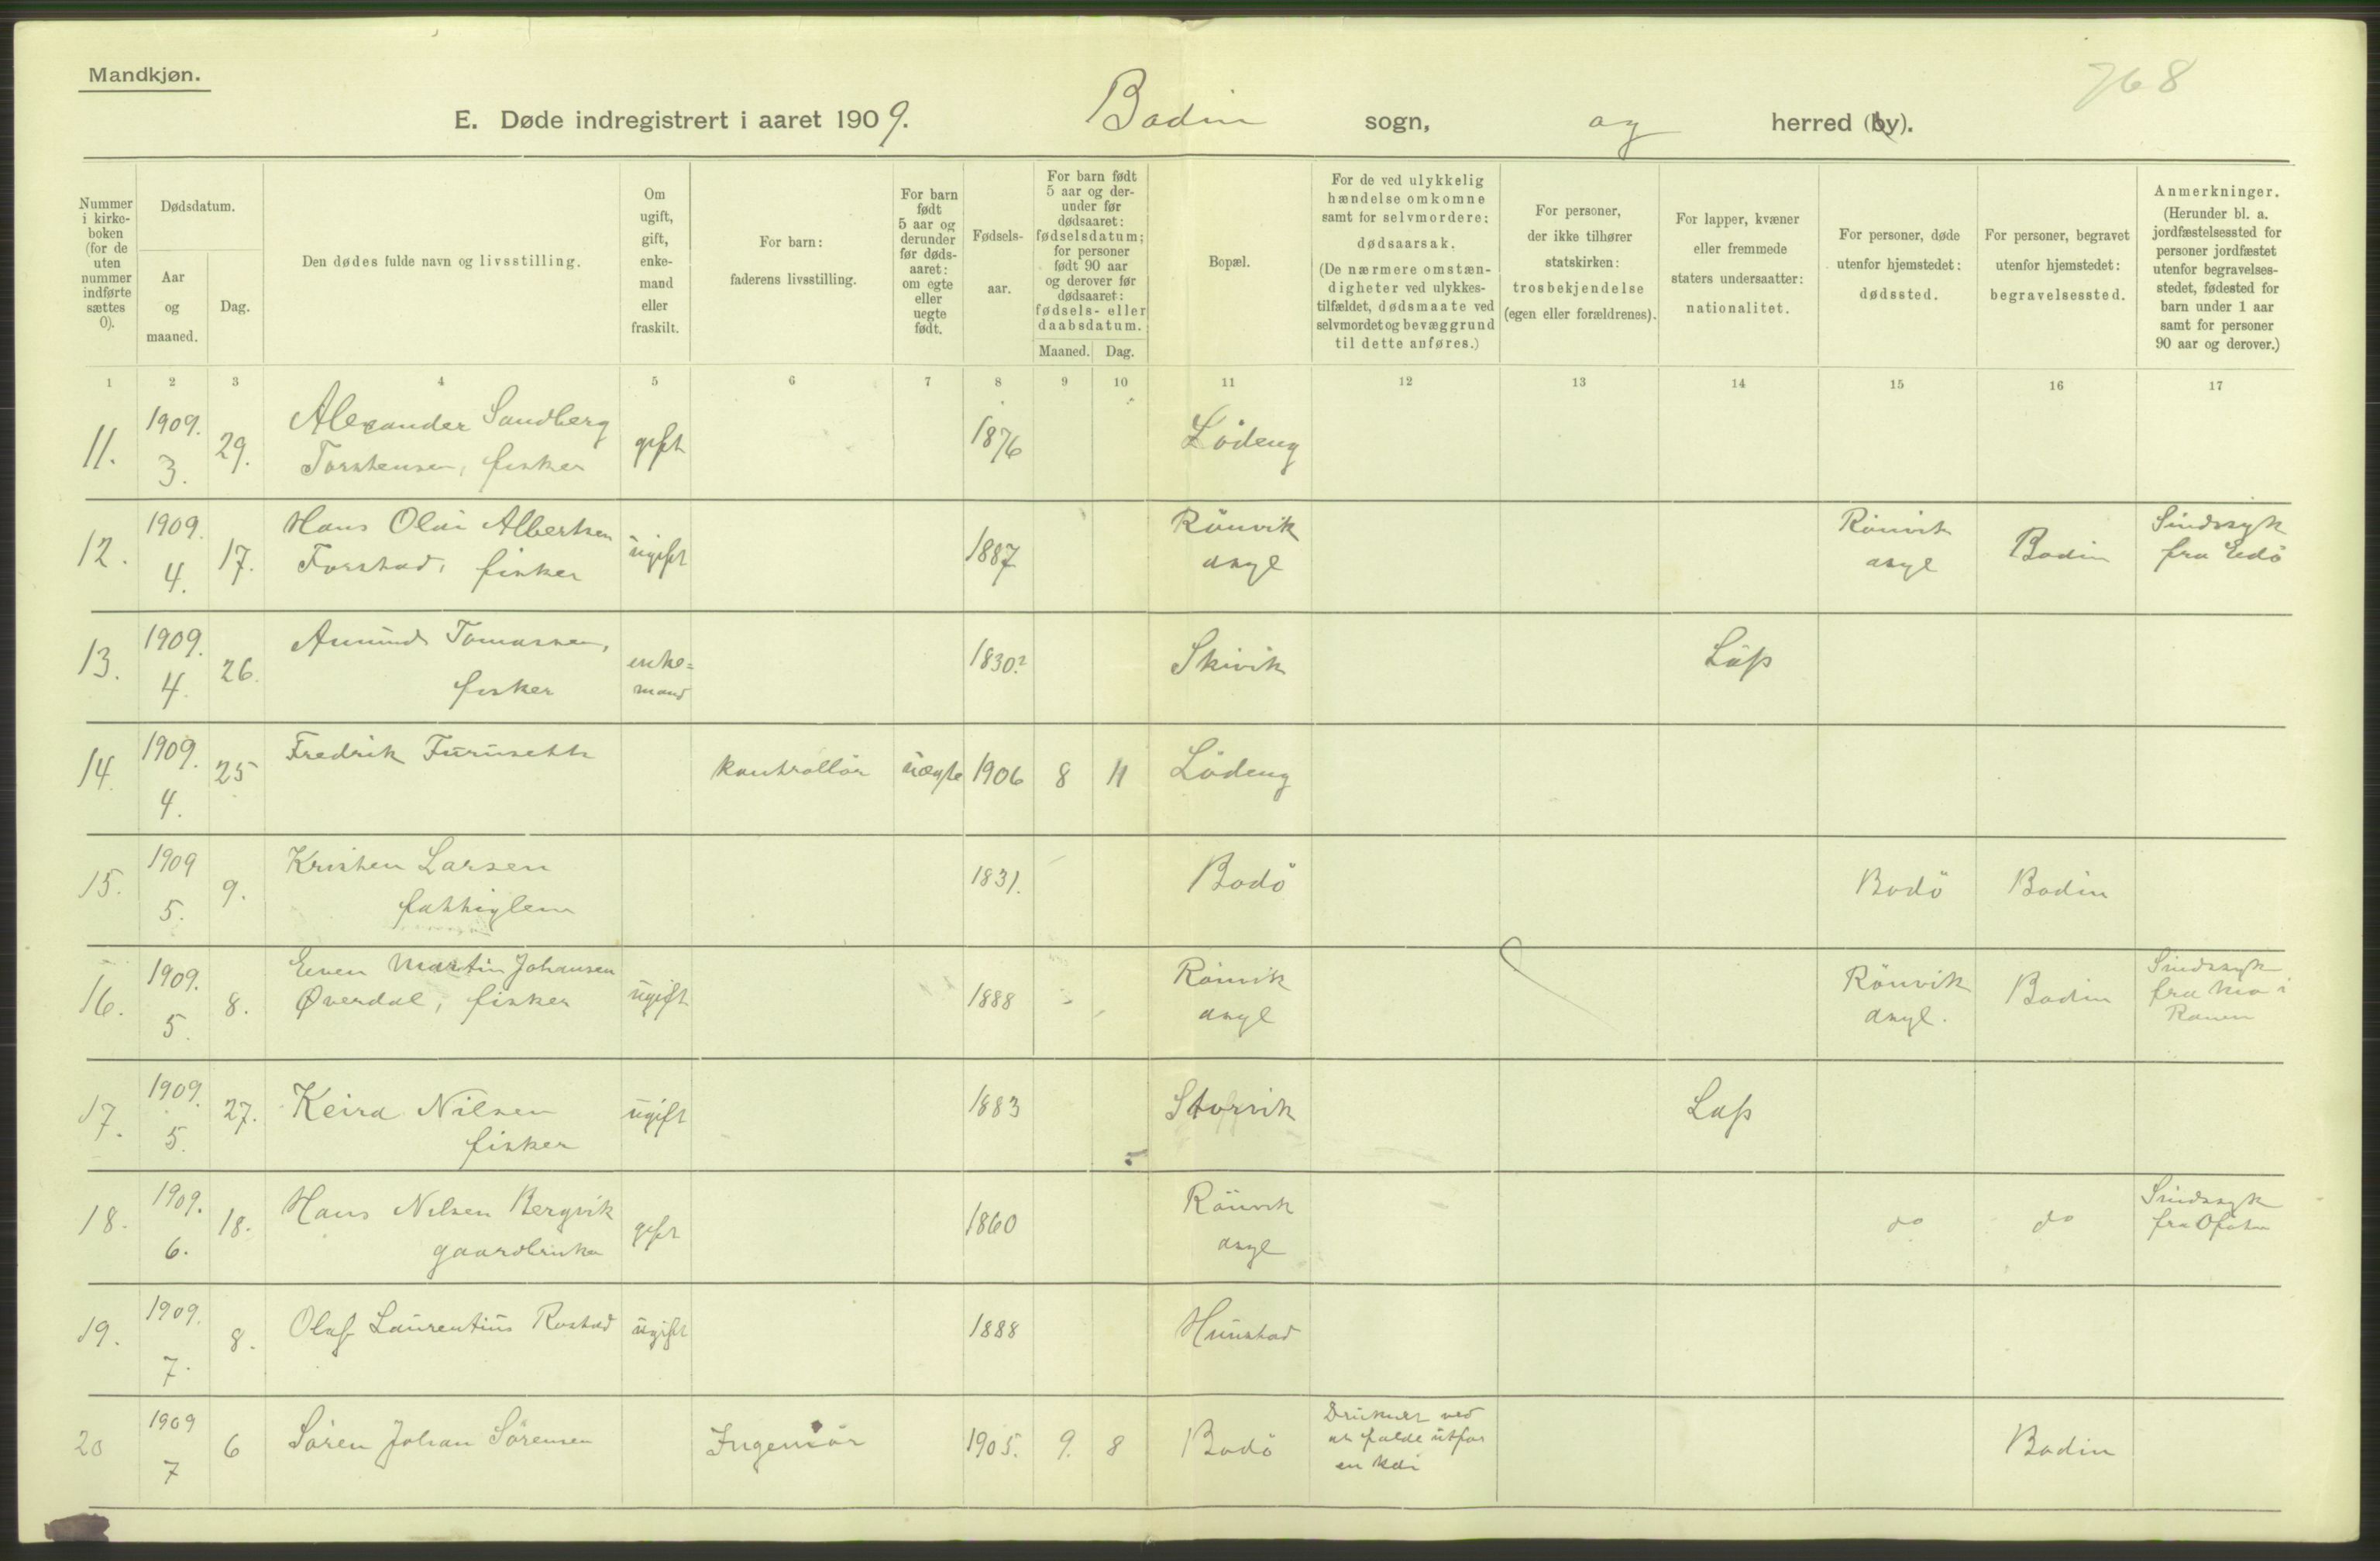 Mandkjøn.
768
E. Døde indregistrert i aaret 1909. Bodin sogn, og herred (by).
Nummer i kirkeboken (for de uten nummer indførte sættes 0).
Dødsdatum.
Aar og maaned.
Dag.
Den dødes fulde navn og livsstilling.
Om ugift, gift, enkemand eller fraskilt.
For barn: faderens livsstilling.
For barn født 5 aar og derunder før dødsaaret: om egte eller uegte født.
Fødselsaar.
For barn født 5 aar og derunder før dødsaaret: fødselsdatum; for personer født 90 aar og derover før dødsaaret: fødsels- eller daabsdatum.
Maaned. Dag.
Bopæl.
For de ved ulykkelig hændelse omkomne samt for selvmordere: dødsaarsak. (De nærmere omstændigheter ved ulykkestilfældet, dødsmaate ved selvmordet og bevæggrund til dette anføres.)
For personer, der ikke tilhører statskirken: trosbekjendelse (egen eller forældrenes).
For lapper, kvæner eller fremmede staters undersaatter: nationalitet.
For personer, døde utenfor hjemstedet: dødssted.
For personer, begravet utenfor hjemstedet: begravelsessted.
Anmerkninger. (Herunder bl. a. jordfæstelsessted for personer jordfæstet utenfor begravelsesstedet, fødested for barn under 1 aar samt for personer 90 aar og derover.)
1 2 3 4 5 6 7 8 9 10 11 12 13 14 15 16 17
11. 1909. 3. 29. Alexander Sandberg Torstensen, fisker gift 1876 Lödeng
12. 1909. 4. 17. Hans Olai Albertsen Forstad, fisker ugift 1887 Rönvik asyl Rönvik asyl Bodin Sindssyk fra Edö
13. 1909. 4. 26. Amund Tomassen, fisker enke=mand 1830? Skivik Lap
14. 1909. 4. 25 Fredrik Furuseth kontrollör uægte 1906 8 11 Lödeng
15. 1909 5. 9. Kristen Larsen fattiglem 1831. Bodö Bodö Bodin
16. 1909. 5. 8. Even Martin Johansen Øverdal, fisker ugift 1888 Rönvik asyl Rönvik asyl. Bodin Sindssyk fra Mo i Ranen
17. 1909. 5. 27. Keira Nilsen fisker ugift 1883 Storvik Lap
18. 1909. 6. 18. Hans Nilsen Bergvik gaardbruker gift 1860 Rönvik asyl do do Sindssyk fra Ofoten
19. 1909. 7. 8. Olaf Laurentius Rostad ugift 1888 Hunstad
20 1909 7 6 Sören Johan Sörensen Ingeniör 1905. 9. 8 Bodö Druknet ved at falde utfor en kai Bodin